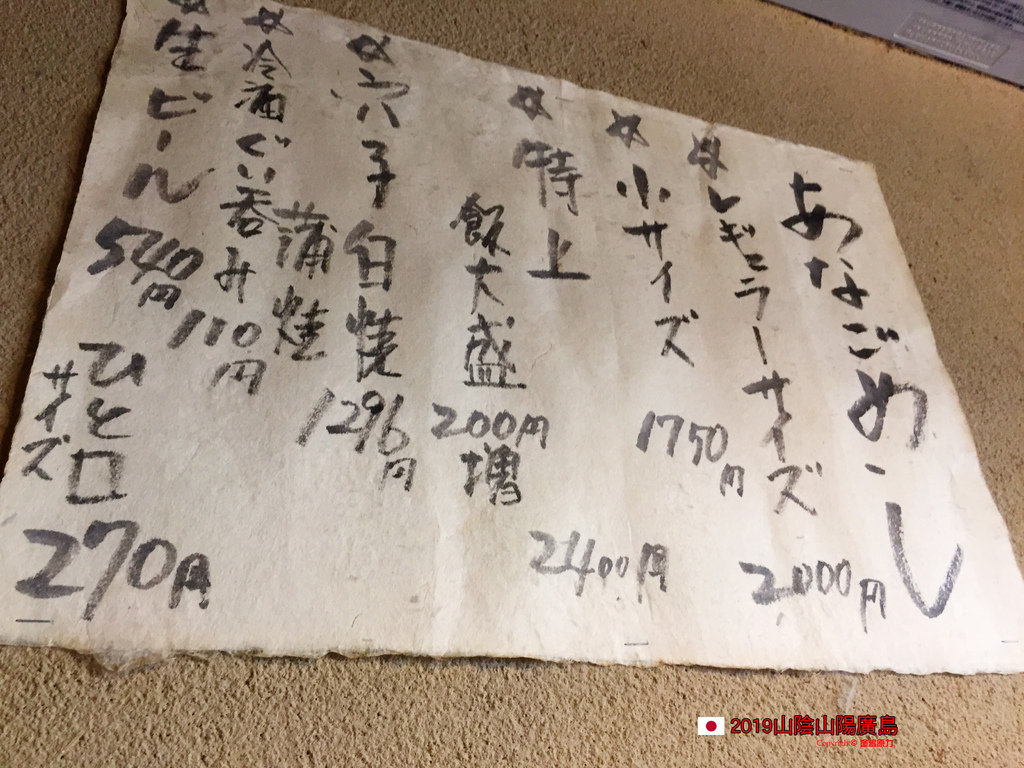 あなごめし
☆レギュラーサイズ 2,000円
☆小サイズ 1750円
☆特上 2400円
飯大盛 200円増
☆穴子白焼 1296円
蒲焼
☆冷酒ぐい呑み 110円
☆生ビール 540円
ひと口
サイズ
270円
2019山陰山陽廣島